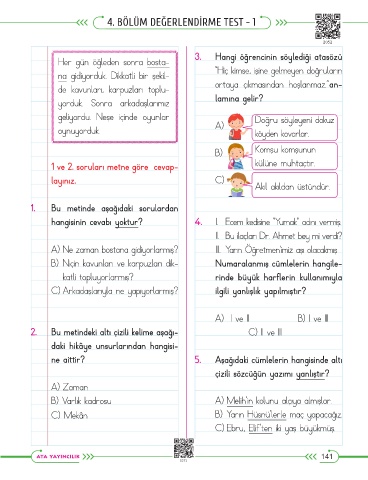 4. BÖLÜM DEĞERLENDİRME TEST - 1
Her gün öğleden sonra bosta-
na gidiyorduk. Dikkatli bir şekil-
de kavunları, karpuzları toplu-
yorduk. Sonra arkadaşlarımız
geliyordu. Neşe içinde oyunlar
oynuyorduk.
1 ve 2. soruları metne göre cevap-
layınız.
1. Bu metinde aşağıdaki sorulardan
hangisinin cevabı yoktur?
A) Ne zaman bostana gidiyorlarmış?
B) Niçin kavunları ve karpuzları dik-
katli topluyorlarmış?
C) Arkadaşlarıyla ne yapıyorlarmış?
2. Bu metindeki altı çizili kelime aşağı-
daki hikâye unsurlarından hangisi-
ne aittir?
A) Zaman
B) Varlık kadrosu
C) Mekân
3. Hangi öğrencinin söylediği atasözü
"Hiç kimse, işine gelmeyen doğruların
ortaya çıkmasından hoşlanmaz." an-
lamına gelir?
A) Doğru söyleyeni dokuz
köyden kovarlar.
B) Komşu komşunun
külüne muhtaçtır.
C) Akıl akıldan üstündür.
4. I. Ecem kedisine "Yumak" adını vermiş.
II. Bu ilaçları Dr. Ahmet bey mi verdi?
III. Yarın Öğretmenimiz aşı olacakmış.
Numaralanmış cümlelerin hangile-
rinde büyük harflerin kullanımıyla
ilgili yanlışlık yapılmıştır?
A) I ve II B) I ve III
C) II ve III
5. Aşağıdaki cümlelerin hangisinde altı
çizili sözcüğün yazımı yanlıştır?
A) Melih'in kolunu alçıya almışlar.
B) Yarın Hüsnü'lerle maç yapacağız.
C) Ebru, Elif'ten iki yaş büyükmüş.
ATA YAYINCILIK
141